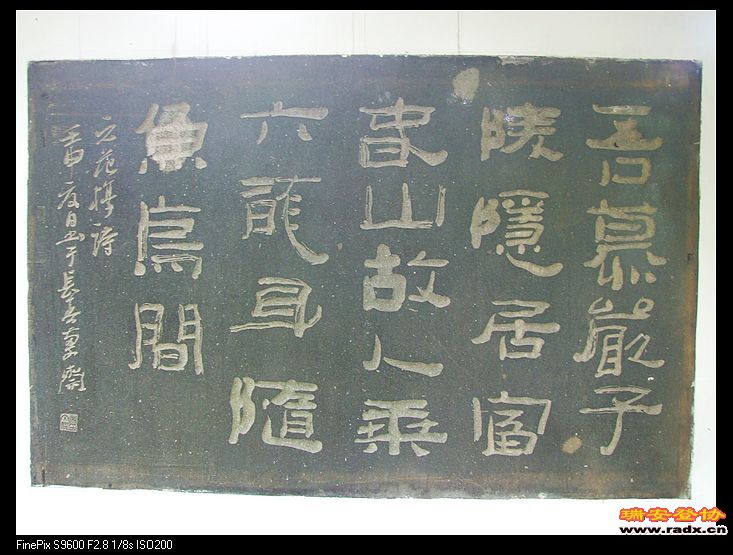 吾慕嚴子
陵隱居富
春山故人乘
六龍身隨
魚鳥間
元范詩
壬申夏日書于長草齋
瑞安登协
www.radx.cn
FinePix S9600 F2.8 1/8s ISO200